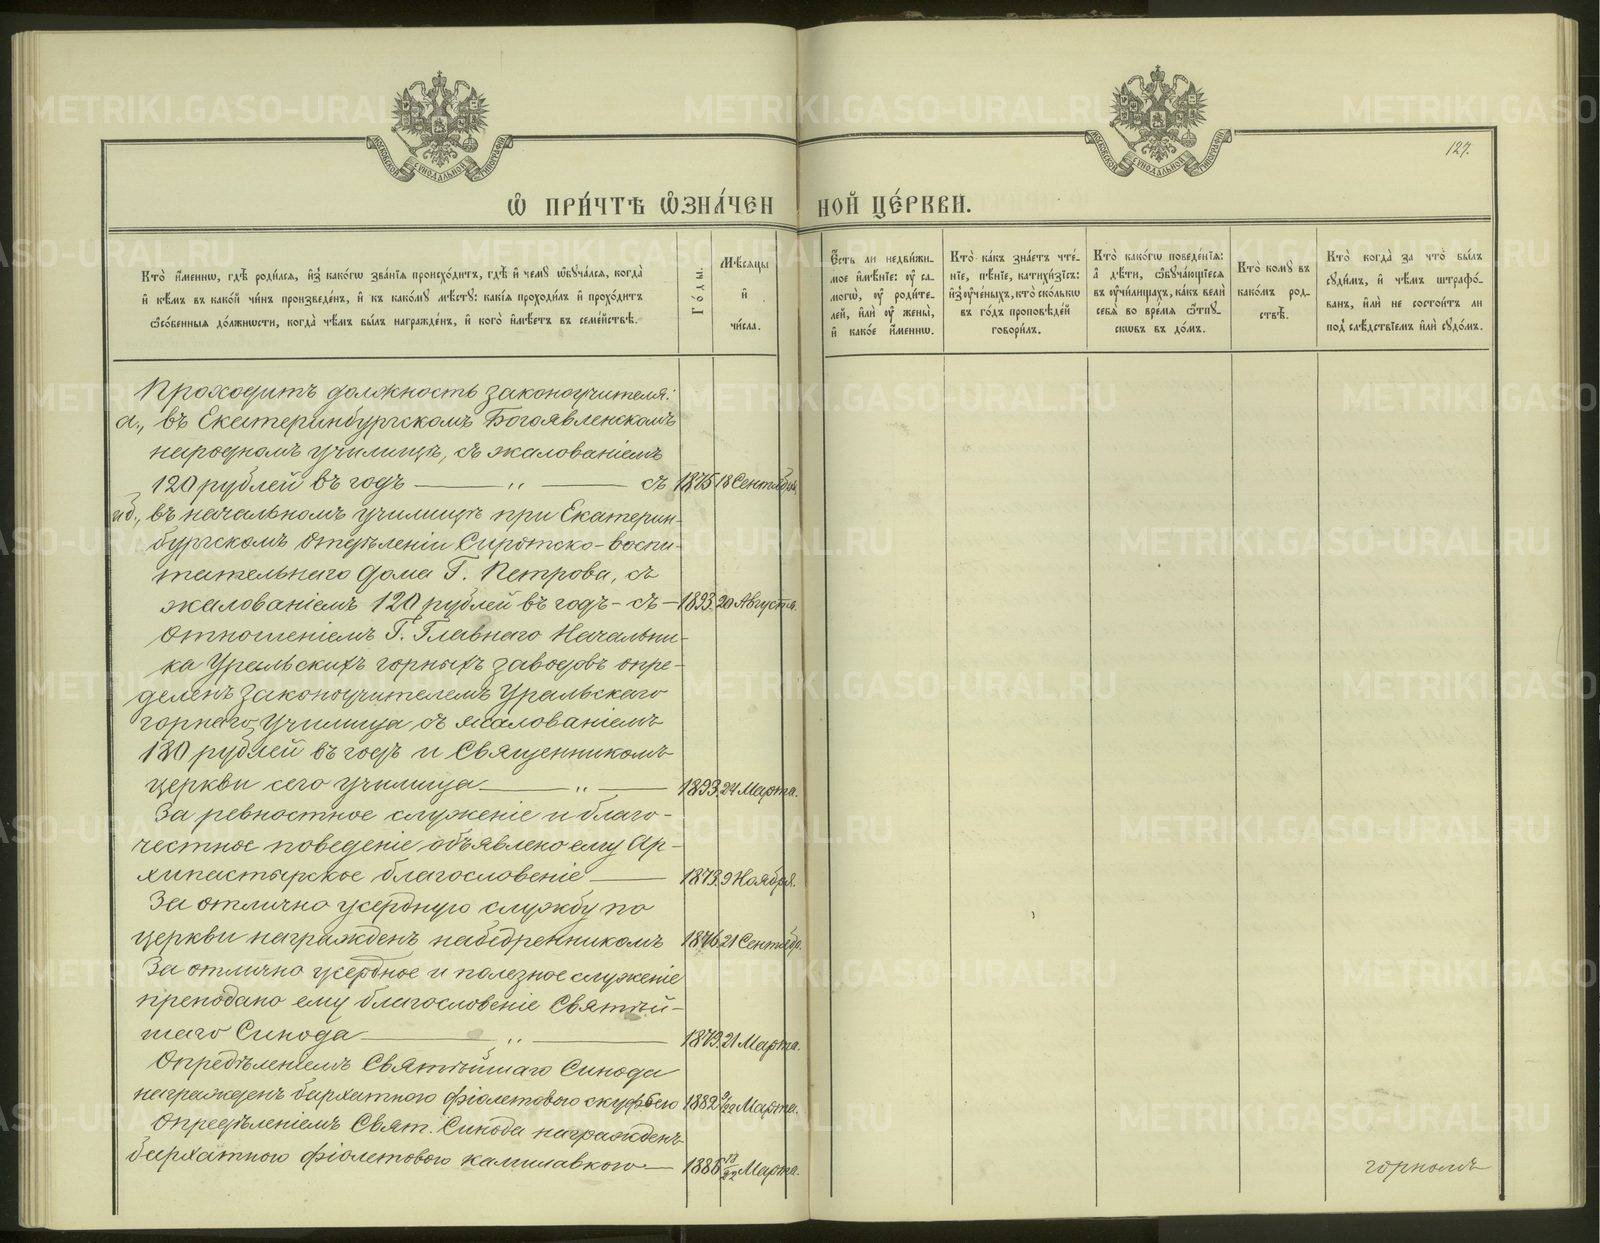 127.
Ѡ ПРИ́ЧТѢ Ѡ҆ЗНА́ЧЕН НОЙ ЦЕ́РКВИ.
МОСКОВСКОЙ СѴНОДАЛЬНОЙ ТИПОГРАФІИ
МОСКОВСКОЙ СѴНОДАЛЬНОЙ ТИПОГРАФІИ
Кто̀ и҆́менно, гдѣ̀ роди́лся, и҆з̾ како́гѡ зва́нїѧ происхо́дитъ, гдѣ̀ и҆ чемꙋ̀ ѡ҆бꙋча́лся, когда̀
и҆ кѣ́мъ въ како́й чи́нъ произведе́нъ, и҆ къ како́мꙋ мѣ́стꙋ: какі̑ѧ проходи́лъ и҆ прохо́дитъ
ѻ҆со́бенныѧ до́лжности, когда̀ чѣ́мъ бы́лъ награжде́нъ, и҆ кого̀ и҆мѣ́етъ въ семе́йствѣ.
Го́ды.
Мѣ́сѧцы
и҆
чи́сла.
Є҆́сть ли недви́жи-
мое и҆мѣ́нїе: ᲂу҆ са-
могѡ̀, ᲂу҆ роди́те-
лей, и҆лѝ ᲂу҆ жены̀,
и҆ како́е и҆́менно.
Кто̀ ка́къ зна́етъ чте́-
нїе, пѣ́нїе, катихи́зїсъ:
и҆з̾ ᲂу҆че́ныхъ, кто̀ ско́лькѡ
въ го́дъ проповѣ́дей
говори́лъ.
Кто̀ како́гѡ поведе́нїѧ:
а҆ дѣ́ти, ѡ҆бꙋча́ющїесѧ
въ ᲂу҆чи́лищахъ, ка́къ велѝ
себѧ̀ во вре́мѧ ѿпꙋ-
скѡвъ въ до́мъ.
Кто̀ комꙋ̀ въ
како́мъ род-
ствѣ̀.
Кто̀ когда̀ за что̀ бы́лъ
сꙋди́мъ, и҆ чѣ́мъ штрафо́-
ванъ, и҆лѝ не состои́тъ ли
под̾ слѣ́дствїемъ и҆лѝ сꙋдо́мъ.
Проходитъ должность законоучителя:
а., въ Екатеринбургскомъ Богоявленскомъ
народномъ училищѣ, съ жалованіемъ
120 рублей въ годъ — „ — съ 1875 18 Сентября,
и б., въ начальномъ училищѣ при Екатерин-
бургскомъ отдѣленіи Сиротско-воспи-
тательнаго дома Г. Петрова, съ
жалованіемъ 120 рублей въ годъ — съ — 1893. 20 Августа.
Отношеніемъ Г. Главнаго Начальни-
ка Уральскихъ горныхъ заводовъ опре-
деленъ законоучителемъ Уральскаго
горнаго училища съ жалованіемъ
180 рублей въ годъ и Священникомъ
церкви сего училища — „ — 1893. 24 Марта.
За ревностное служеніе и благо-
честное поведеніе объявлено ему Ар-
хипастырское благословеніе — 1873. 9 Ноября.
За отлично усердную службу по
церкви награжденъ набедренникомъ 1876. 21 Сентябр.
За отлично усердное и полезное служеніе
преподано ему благословеніе Святѣй-
шаго Синода — „ — 1879. 21 Марта.
Опредѣленіемъ Святѣйшаго Синода
награжденъ бархатною фіолетовою скуфьею 1882 9/22 Марта.
Опредѣленіемъ Свят. Синода награжденъ
бархатною фіолетовою камилавкою — 1886 13/22 Марта.
горномъ
METRIKI.GASO-URAL.RU